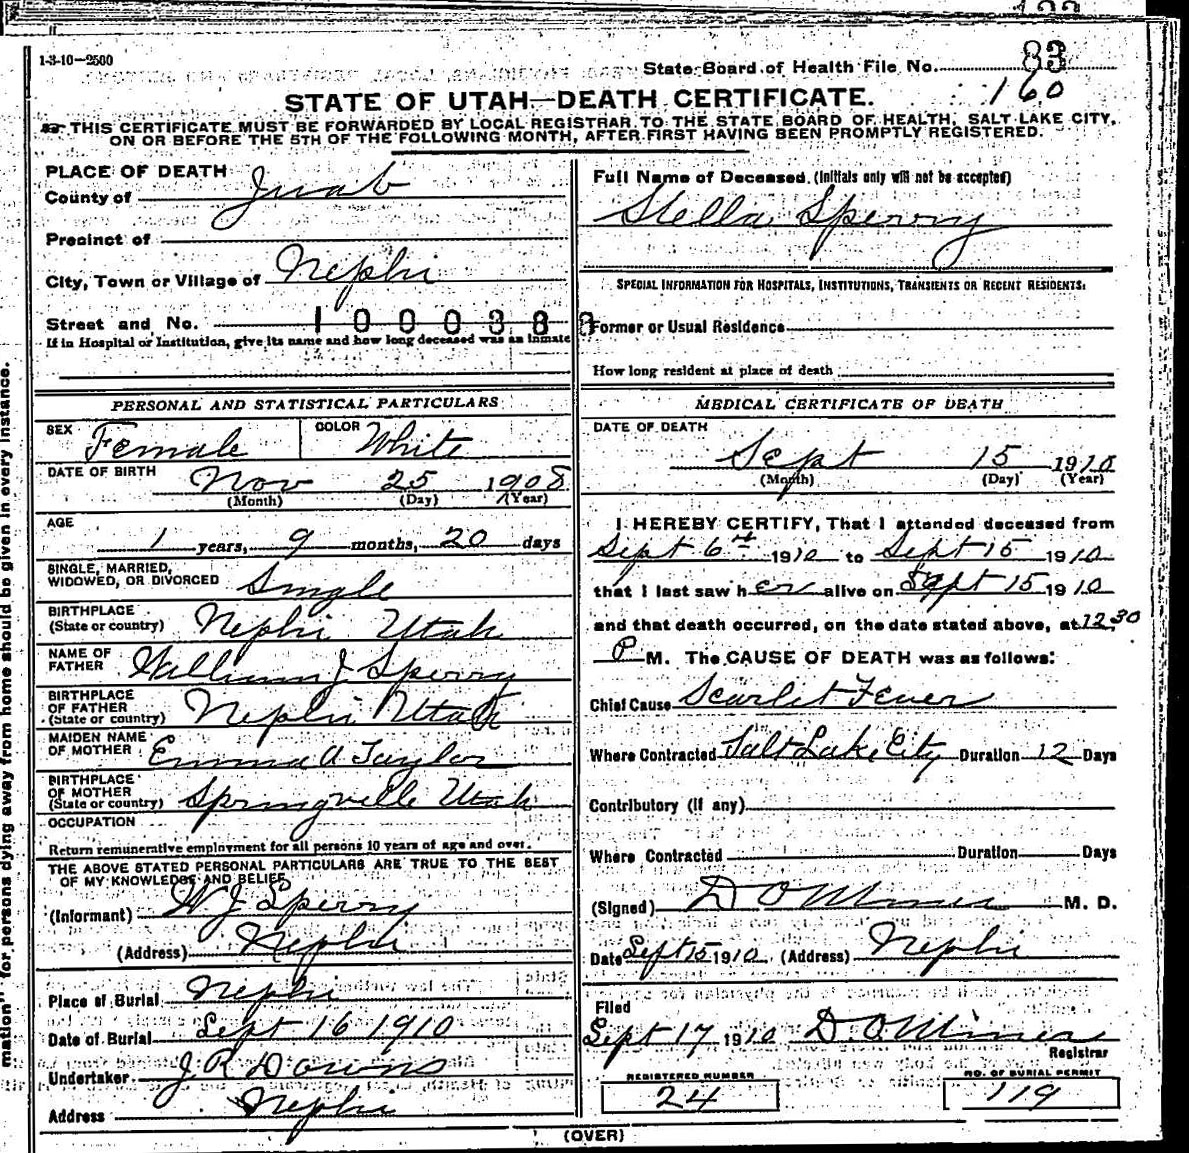 1-3-10—2500
State Board of Health File No. 83
160
STATE OF UTAH—DEATH CERTIFICATE.
THIS CERTIFICATE MUST BE FORWARDED BY LOCAL REGISTRAR TO THE STATE BOARD OF HEALTH, SALT LAKE CITY,
ON OR BEFORE THE 5TH OF THE FOLLOWING MONTH, AFTER FIRST HAVING BEEN PROMPTLY REGISTERED.
PLACE OF DEATH
County of Juab
Precinct of
City, Town or Village of Nephi
Street and No. 1000388
If in Hospital or Institution, give its name and how long deceased was an inmate
PERSONAL AND STATISTICAL PARTICULARS
SEX Female COLOR White
DATE OF BIRTH Nov 25 1908
(Month) (Day) (Year)
AGE
1 years, 9 months, 20 days
SINGLE, MARRIED,
WIDOWED, OR DIVORCED Single
BIRTHPLACE
(State or country) Nephi Utah
NAME OF
FATHER William J Sperry
BIRTHPLACE
OF FATHER
(State or country) Nephi Utah
MAIDEN NAME
OF MOTHER Emma A Taylor
BIRTHPLACE
OF MOTHER
(State or country) Springville Utah
OCCUPATION
Return remunerative employment for all persons 10 years of age and over.
THE ABOVE STATED PERSONAL PARTICULARS ARE TRUE TO THE BEST
OF MY KNOWLEDGE AND BELIEF
(Informant) W J Sperry
(Address) Nephi
Place of Burial Nephi
Date of Burial Sept 16 1910
Undertaker J R Downs
Address Nephi
Full Name of Deceased. (Initials only will not be accepted)
Stella Sperry
SPECIAL INFORMATION FOR HOSPITALS, INSTITUTIONS, TRANSIENTS OR RECENT RESIDENTS.
Former or Usual Residence
How long resident at place of death
MEDICAL CERTIFICATE OF DEATH
DATE OF DEATH
Sept 15 1910
(Month) (Day) (Year)
I HEREBY CERTIFY, That I attended deceased from
Sept 6th 1910 to Sept 15 1910
that I last saw her alive on Sept 15 1910
and that death occurred, on the date stated above, at 12.30
P M. The CAUSE OF DEATH was as follows:
Chief Cause Scarlet Fever
Where Contracted Salt Lake City Duration 12 Days
Contributory (if any)
Where Contracted Duration Days
(Signed) D O Miner M. D.
Date Sept 15 1910 (Address) Nephi
Filed
Sept 17 1910 D. O Miner
Registrar
REGISTERED NUMBER
24
NO. OF BURIAL PERMIT
119
(OVER)
mation" for persons dying away from home should be given in every instance.